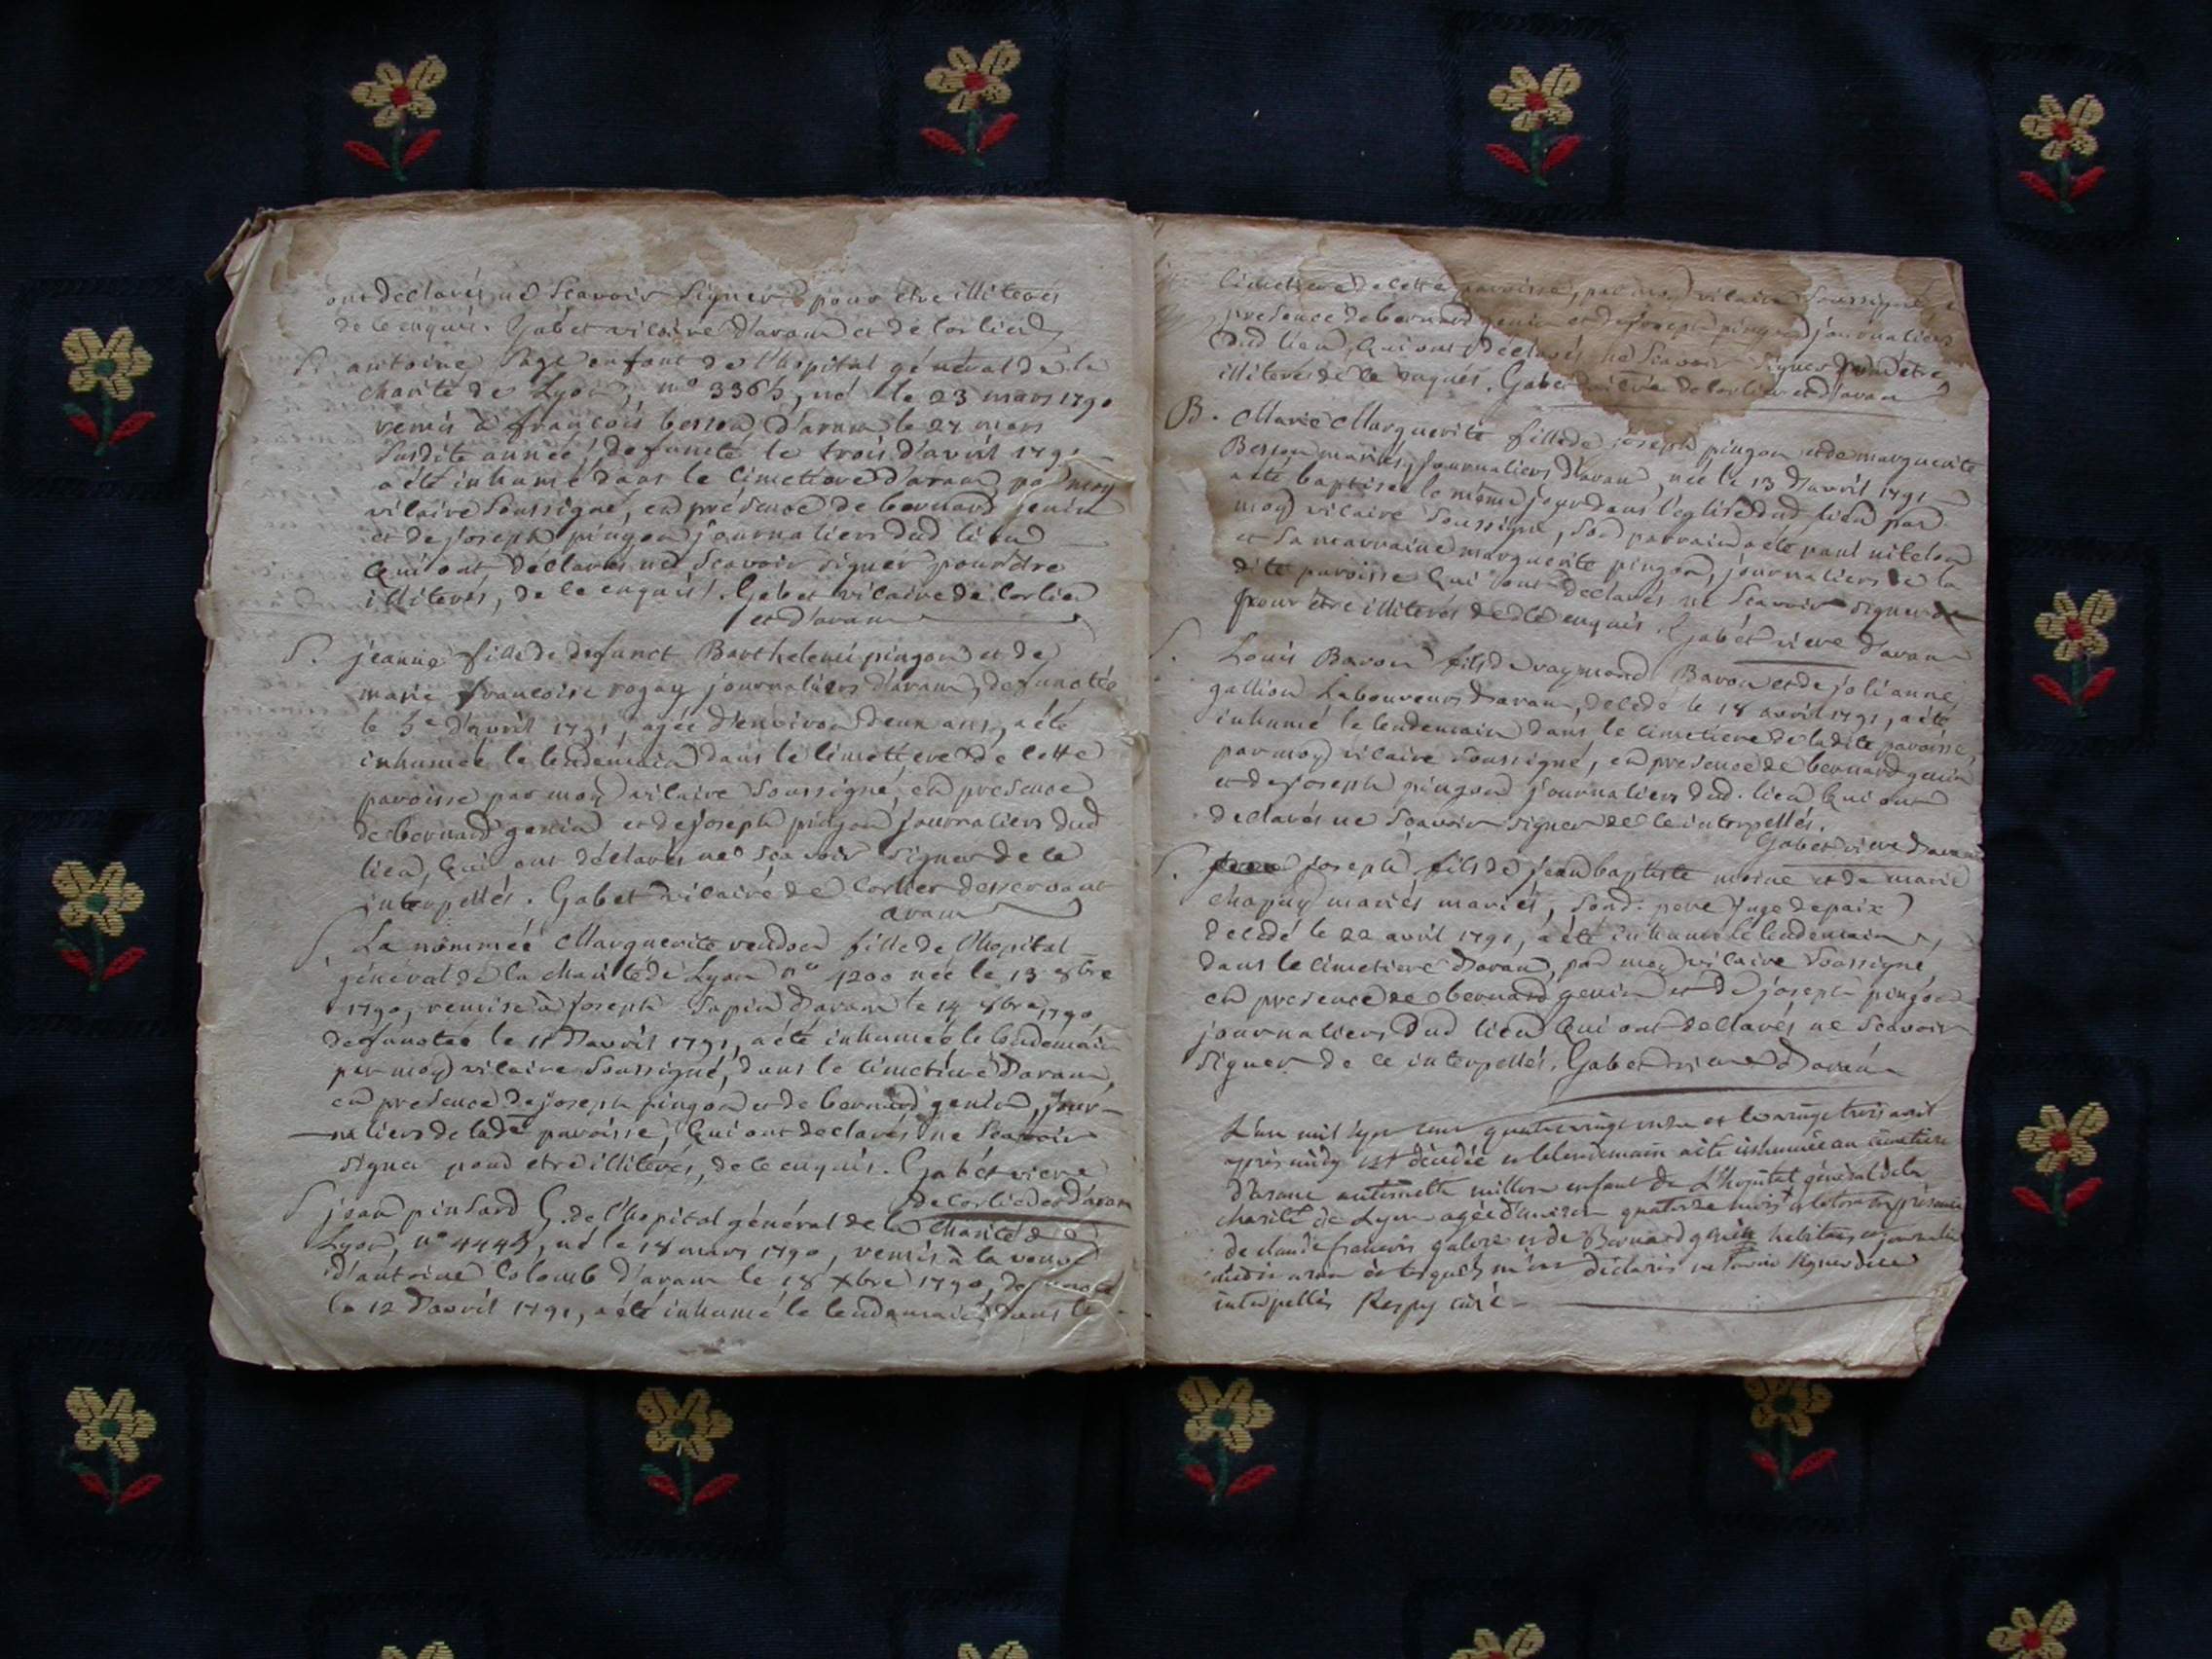 ont déclarés ne Scavoir Signer pour etre illiterés
de ce enquis. Gabet vicaire d'aran et de Corlier
S. antoine Page enfant de l'hopital général de la
charité de Lyon, n° 3365, né le 23 mars 1790
remis à francois besson d'aran le 27 mars
Susdite année, defuncté le trois d'avril 1791
a été inhumé dans le Cimetiere d'aran par moy
vicaire Soussigné, en présence de bernard genin
et de joseph pingon journaliers dud lieu
Qui ont déclarés ne Scavoir signer pour etre
illiterés, de ce enquis. Gabet vicaire de Corlier
et d'aran
S. jeanne fille de defunct Barthelemi pingon et de
marie francoise rogay journaliers d'aran, defunctée
le 5e d'avril 1791, agée d'environ deux ans, a été
inhumée le lendemain dans le Cimettiere de Cette
paroisse par moy vicaire Soussigné, en presence
de bernard genin et de joseph pingon journaliers dud
lieu, Qui ont déclarés ne Sçavoir signer de ce
interpellés. Gabet vicaire de Corlier desservant
aran
S. La nommée Marguerite vendoen fille de l'hopital
général de la charité de Lyon n° 4200 née le 13 8bre
1790, remise à joseph Sapin d'aran le 14 8bre 1790
defunctée le 11 d'avril 1791, a été inhumée le lendemain
par moy vicaire Soussigné, dans le Cimetiere d'aran,
en presence de joseph pingon et de bernard genin, jour-
naliers de lade paroisse, Qui ont declarés ne Scavoir
signer pour etre illiterés, de ce enquis. Gabet vicre
de Corlier et d'aran
S jean pinsard G. de l'hopital général de la Charité de
Lyon, n° 4445, né le 18 mars 1790, remis à la veuve
d'antoine Colomb d'aran le 18 Xbre 1790, defuncté
le 12 d'avril 1791, a été inhumé le lendemain dans le
Cimetiere de Cette paroisse, par moy vicaire Soussigné
presence de bernard genin et de joseph pingon journaliers
Dud lieu, Qui ont déclarés ne Scavoir Signer pour etre
illiterés de ce enquis. Gabet vicaire de Corlier et d'aran
B. Marie Marguerite fille de joseph pingon et de marguerite
Besson mariés, journaliers d'aran, née le 13 d'avril 1791
a été baptisée le même jour dans l'eglise dud lieu par
moy vicaire Soussigné, Son parrain a été paul
et Sa marraine marguerite pingon, journaliers de la
dite paroisse Qui ont declarés ne Scavoir signer
pour être illiterés de ce enquis. Gabet vicre d'aran
S. Louis Baron fils de raymond Baron et de jolianne
gallion Laboureurs d'aran, décédé le 18 avril 1791, a été
inhumé le lendemain dans le Cimetiere de ladite paroisse,
par moy vicaire Soussigné, en presence de bernard genin
et de joseph pingon journaliers dud. lieu Qui ont
declarés ne Sçavoir signer de ce interpellés.
Gabet vicre d'aran
S. joseph fils de jean baptiste moine et de marie
Chapuy mariés mariés, Sond. pere juge de paix
décédé le 22 avril 1791, a été inhumé le lendemain,
dans le Cimetiere d'aran, par moy vicaire Soussigné,
en presence de bernard genin et de joseph pingon
journaliers dud lieu Qui ont declarés ne Scavoir
signer de ce interpellés. Gabet vicre d'aran
L'an mil sept cent quatre vingt onze et le vingt trois avril
après midy est décédée et le lendemain a été inhumée au cimetiere
d'arane antoinette millon enfant de L'hopital général de la
charité de Lyon agée d'environ quatorze mois en presence
de claude francois galere et de Bernard genin habitans et journaliers
lesquels m'ont déclarés ne Savoir signer de ce
interpellés Respy curé